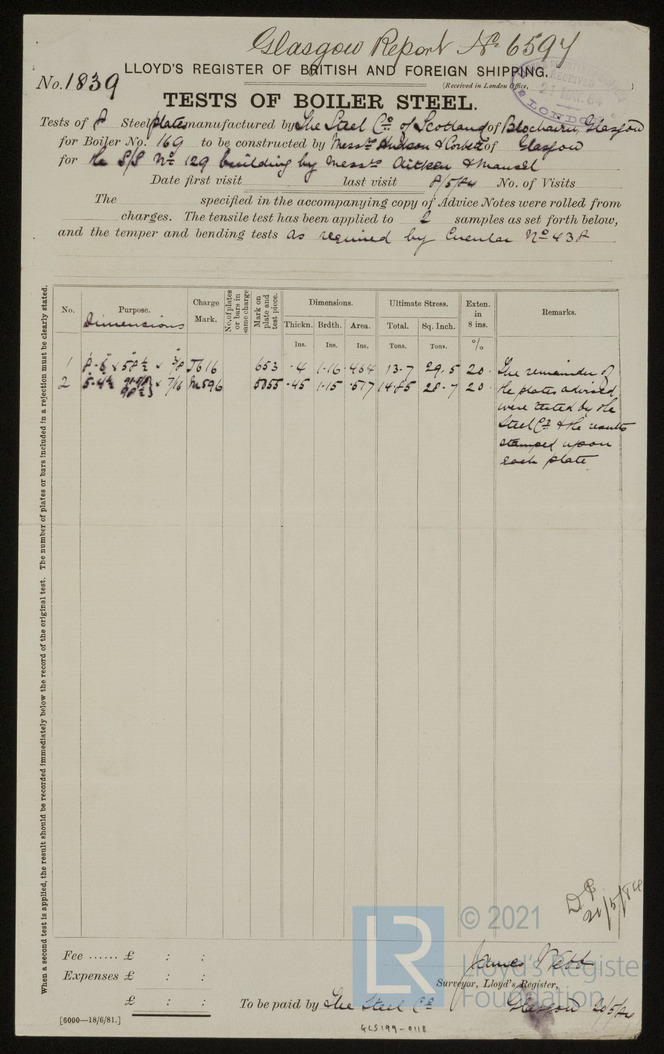 Glasgow Report No. 6597
No. 1839
LLOYD'S REGISTER OF BRITISH AND FOREIGN SHIPPING.
(Received in London Office, )
RECEIVED
LONDON
TESTS OF BOILER STEEL.
Tests of 8 Steel plates manufactured by The Steel Co. of Scotland of Blochairn, Glasgow
for Boiler No. 169 to be constructed by Messrs. Hudson & Corbett of Glasgow
for the S/S No. 129 building by Messrs. Aitken & Mansel
Date first visit last visit 8/5/84 No. of Visits
The specified in the accompanying copy of Advice Notes were rolled from
charges. The tensile test has been applied to 2 samples as set forth below,
and the temper and bending tests as required by Circular No. 438
No. Purpose. Charge Mark. No. of plates or bars in same charge Mark on plate and test piece. Dimensions. Ultimate Stress. Exten. in 8 ins. Remarks.
Dimensions Thickn. Brdth. Area. Total. Sq. Inch.
Ins. Ins. Ins. Tons. Tons. %
1 J616 653 .4 1.16 .464 13.7 29.5 20. The remainder of
2 7/16 5055 .45 1.15 .517 14.85 28.7 20. the plates advised
were tested by the
Steel Co. & the results
stamped upon
each plate
When a second test is applied, the result should be recorded immediately below the record of the original test. The number of plates or bars included in a rejection must be clearly stated.
21/5/84
Fee ...... £ : :
Expenses £ : :
£ : :
James Webb
Surveyor, Lloyd's Register,
To be paid by The Steel Co. Glasgow 20/5/84
[6000—18/6/81.]
GLS199-0118
© 2021
LR
Lloyd's Register
Foundation